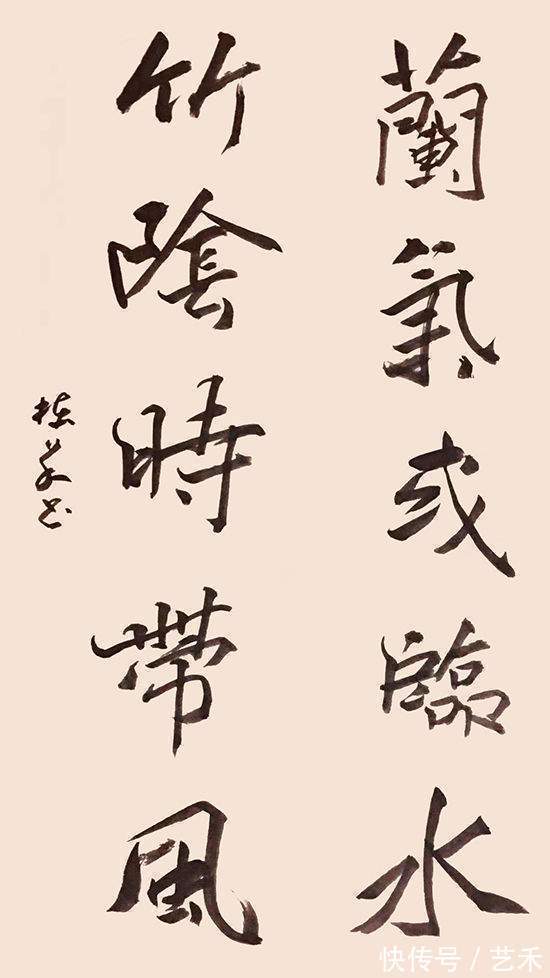 蘭氣或臨水
竹陰時帶風
书
快传号/艺禾